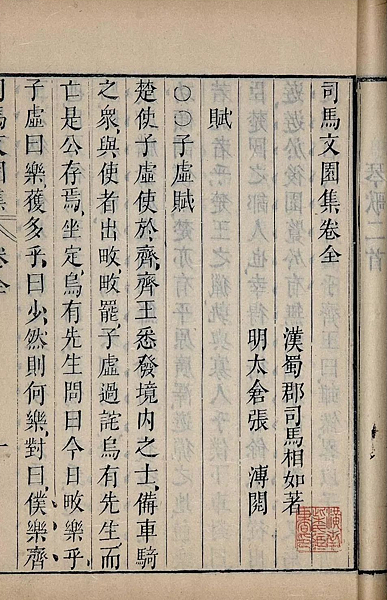 司馬文園集卷全
漢蜀郡司馬相如著
明太倉張溥閱
賦
○○子虛賦
楚使子虛使於齊，齊王悉發境內之士，備車騎
之衆，與使者出畋，畋罷，子虛過詫烏有先生，而
亡是公存焉，坐定，烏有先生問曰，今日畋樂乎，
子虛曰，樂，獲多乎，曰，少，然則何樂，對曰，僕樂齊
司馬文園集 卷全 一